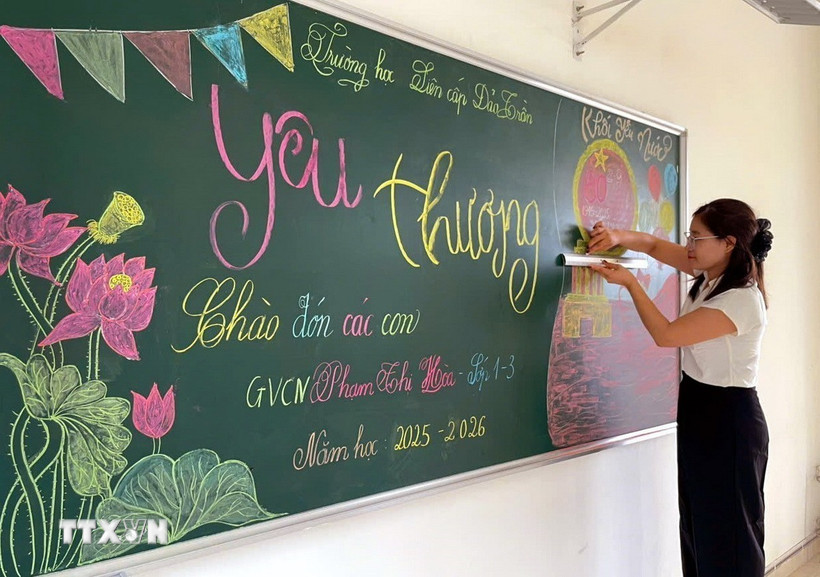 Trường học Liên cấp Đảo Trần
Khối Yêu Nước
Yêu
thương
Chào đón các con
GVCN Phạm Thị Hòa - Lớp 1-3
Năm học: 2025-2026
TTXVN